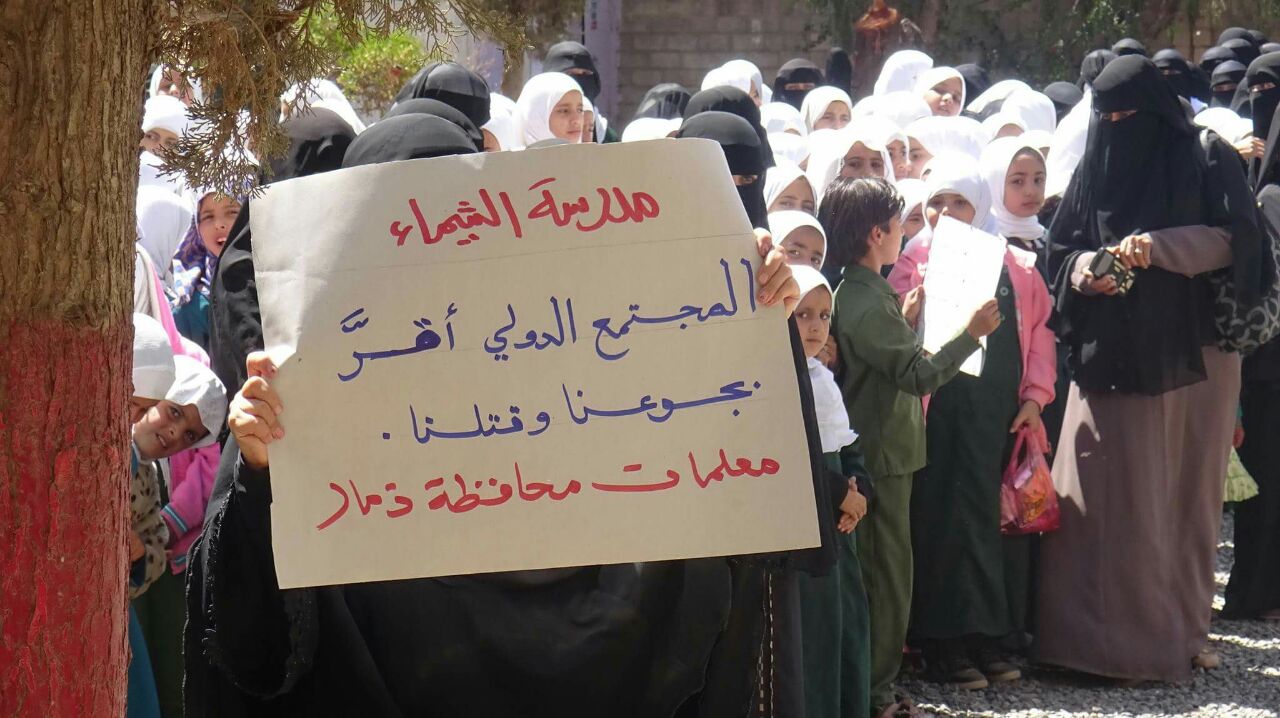 مدرسة الشيماء
المجتمع الدولي أقرَّ
بجوعنا وقتلنا.
معلمات محافظة ذمار